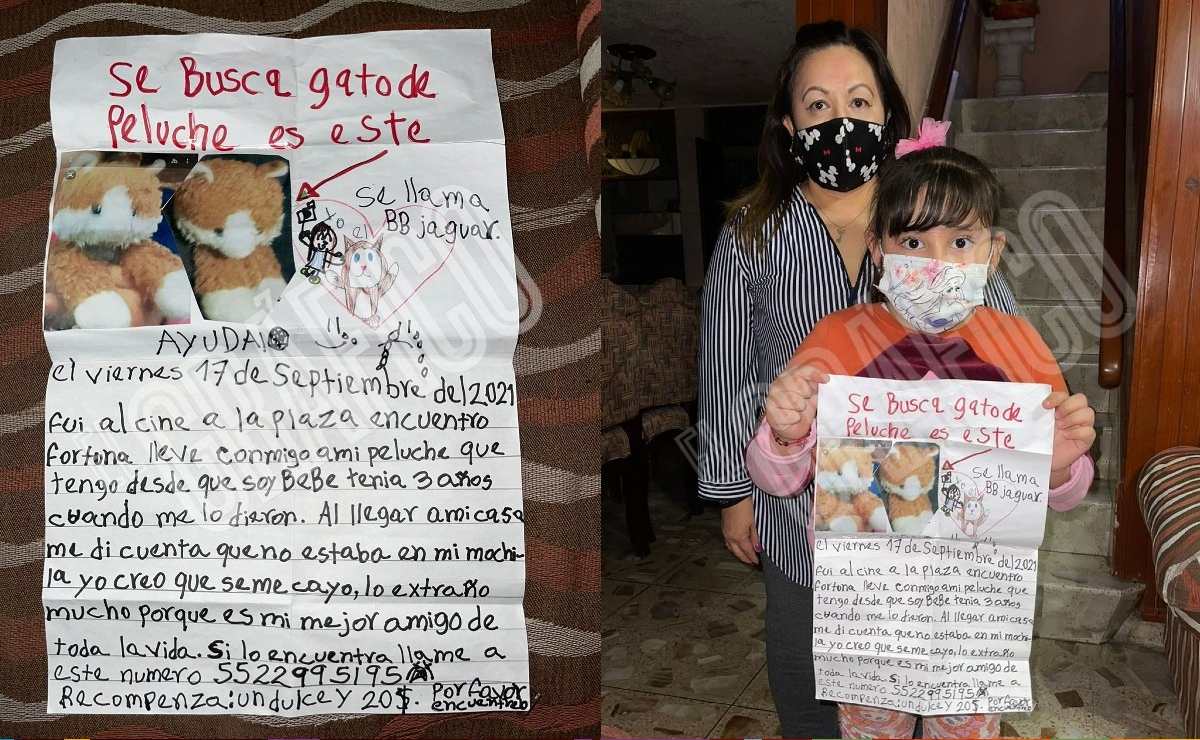 Se Busca gato de
Peluche es este
Se llama
BB jaguar.
yo
el
AYUDA!
el viernes 17 de Septiembre del 2021
fui al cine a la plaza encuentro
fortona lleve conmigo ami peluche que
tengo desde que soy BeBe tenia 3 años
cuando me lo dieron. Al llegar ami casa
me di cuenta que no estaba en mi mochi-
la yo creo que seme cayo, lo extraño
mucho porque es mi mejor amigo de
toda la vida. Si lo encuentra llame a
este numero 5522995195
Recompenza: un dulce y 20$. Por favor
encuentrenlo
Se Busca gato de
Peluche es este
Se llama
BB jaguar.
el viernes 17 de Septiembre del 2021
fui al cine a la plaza encuentro
fortona lleve conmigo ami peluche que
tengo desde que soy BeBe tenia 3 años
cuando me lo dieron. Al llegar ami casa
me di cuenta que no estaba en mi mochi-
la yo creo que seme cayo, lo extraño
mucho porque es mi mejor amigo de
toda la vida. Si lo encuentra llame a
este numero 5522995195
Recompenza: un dulce y 20$. Por favor
encuentrenlo